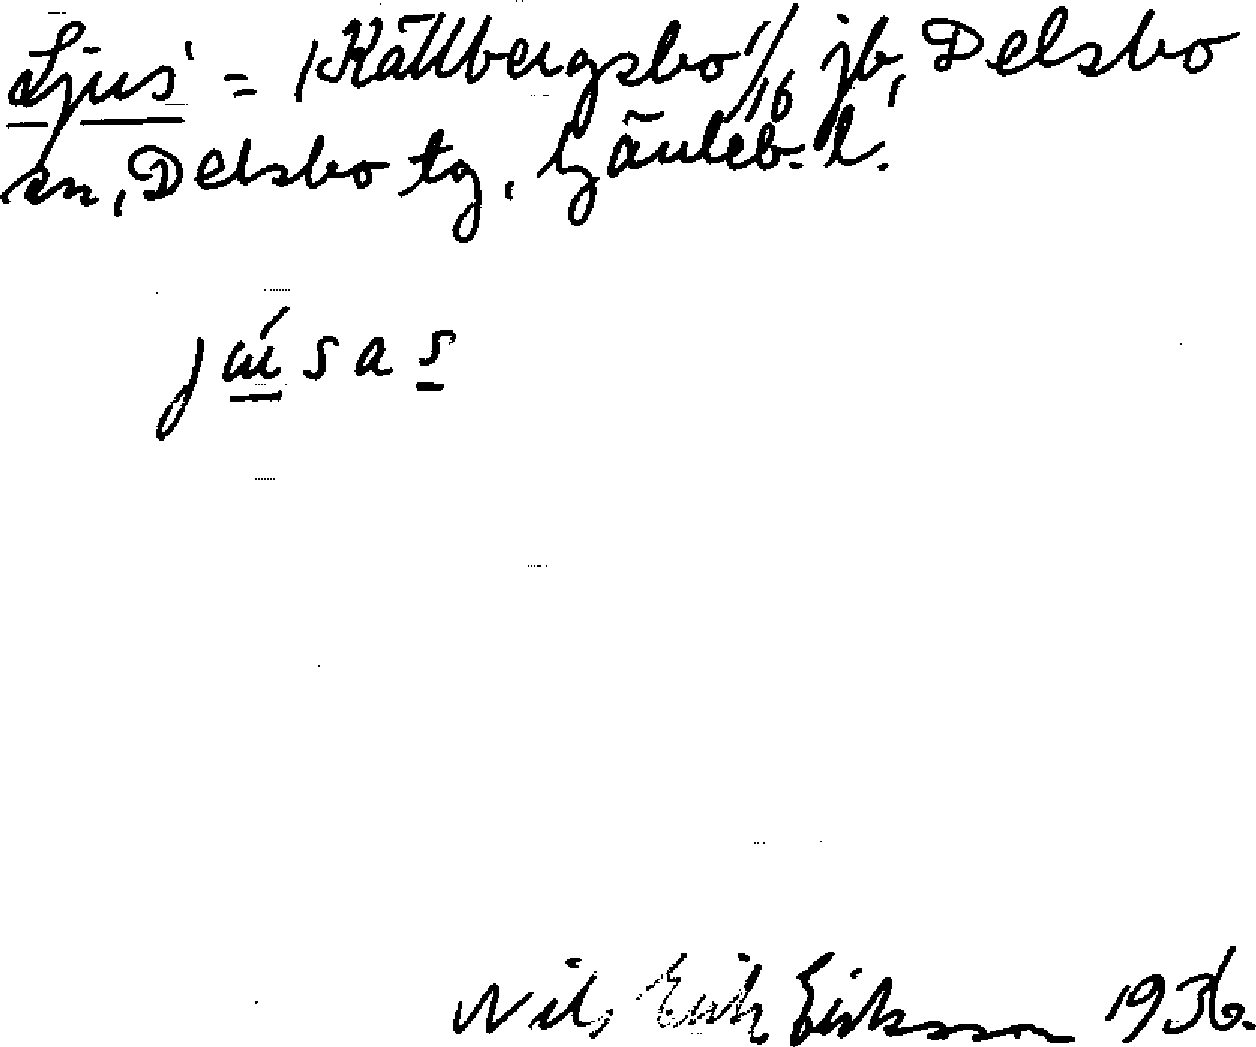 Ljus' = Källbergsbo 1/16 jb, Delsbo
sn, Delsbo tg, Gävleb. l.
Nils Erik Eriksson 1936.